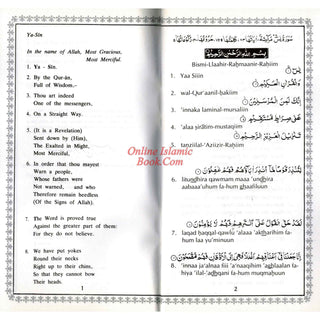 Ya-Sin
In the name of Allah, Most Gracious,
Most Merciful.
1. Ya - Sin.
2. By the Qur-án,
Full of Wisdom,-
3. Thou art indeed
One of the messengers,
4. On a Straight Way.
5. (It is a Revelation)
Sent down by (Him),
The Exalted in Might,
Most Merciful,
6. In order that thou mayest
Warn a people,
Whose fathers were
Not warned, and who
Therefore remain heedless
(Of the Signs of Allah).
7. The Word is proved true
Against the greater part of them:
For they do not believe.
8. We have put yokes
Round their necks
Right up to their chins,
So that they cannot bow
Their heads.
1
Online Islamic
Book.Com
بِسْمِ اللَّهِ الرَّحْمَٰنِ الرَّحِيمِ
Bismi-Llaahir-Raḥmaanir-Raḥiim
يس
1. Yaa Siiin
وَالْقُرْآنِ الْحَكِيمِ
2. wal-Qur'aanil-ḥakiim
إِنَّكَ لَمِنَ الْمُرْسَلِينَ
3. 'innaka laminal-mursaliin
عَلَىٰ صِرَاطٍ مُسْتَقِيمٍ
4. 'alaa ṣirāṭim-mustaqiim
تَنْزِيلَ الْعَزِيزِ الرَّحِيمِ
5. tanziilal-'Aziizir-Raḥiim
لِتُنْذِرَ قَوْمًا مَا أُنْذِرَ آبَاؤُهُمْ فَهُمْ غَافِلُونَ
6. litundhira qawmam maaa 'undhira
aabaaa'uhum fa-hum ghaafiluun
لَقَدْ حَقَّ الْقَوْلُ عَلَىٰ أَكْثَرِهِمْ فَهُمْ لَا يُؤْمِنُونَ
7. laqad ḥaqqal-qawlu 'alaaa 'aktharihim fa-
hum laa yu'minuun
8. 'innaa ja'alnaa fiii 'a'naaqihim 'aghlaalan fa-
hiya 'ilal-'adhqani fa-hum muqmaḥuun
2